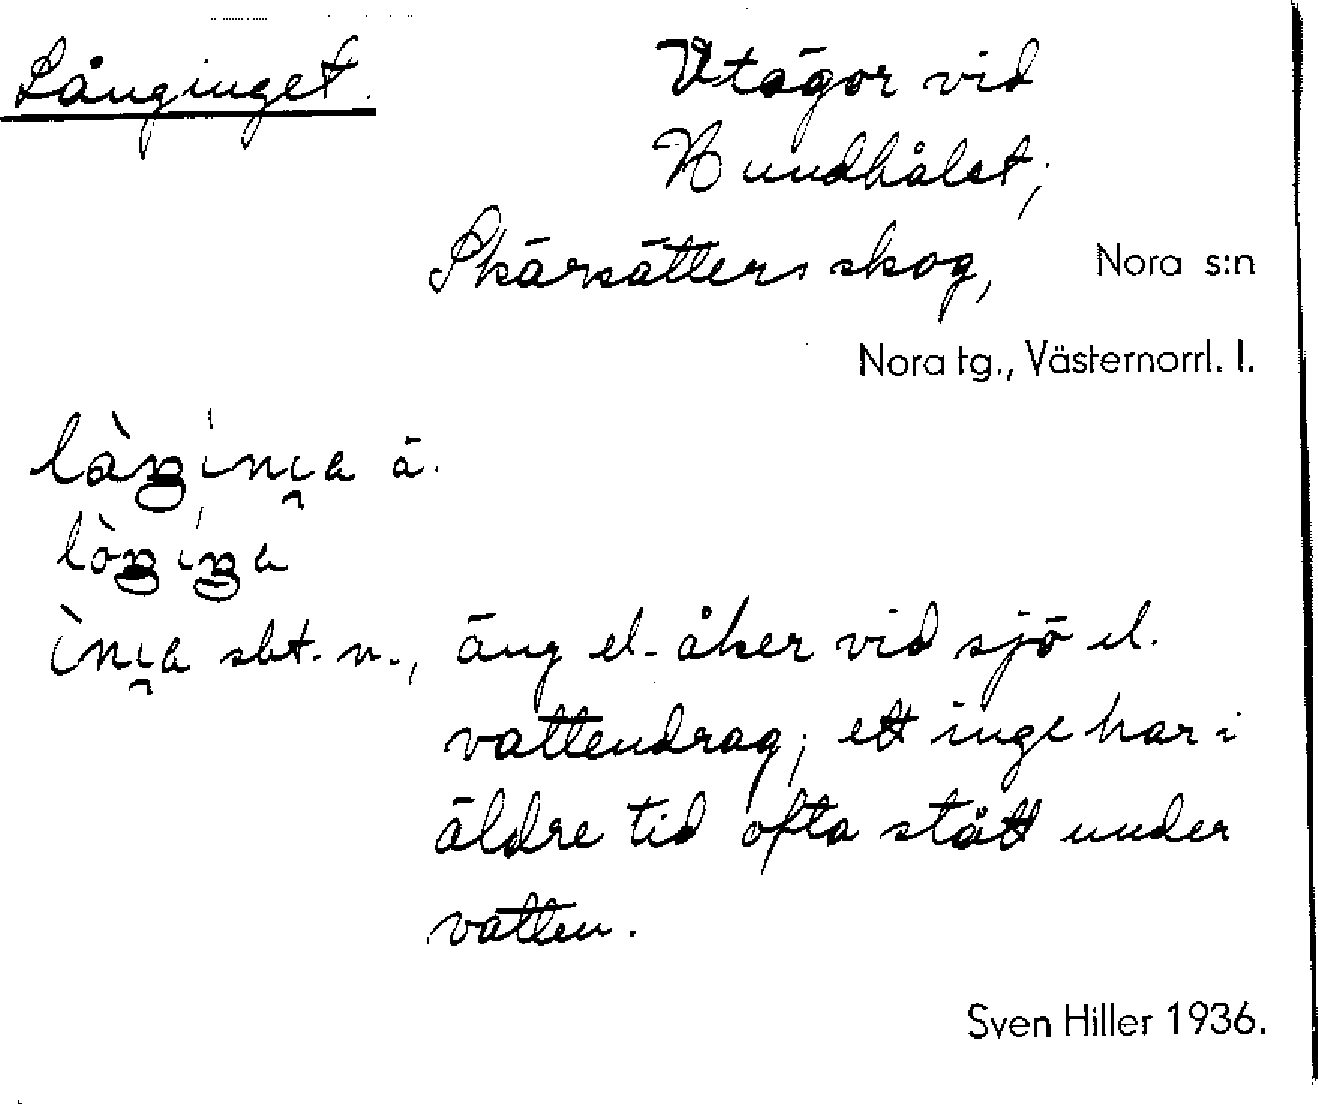 Långinget.
Utägor vid
Hundhålet;
Skärsätters skog, Nora s:n
Nora tg., Västernorrl. l.
ä.
sbt. n., äng el. åker vid sjö el.
vattendrag; ett inge har i
äldre tid ofta stått under
vatten.
Sven Hiller 1936.